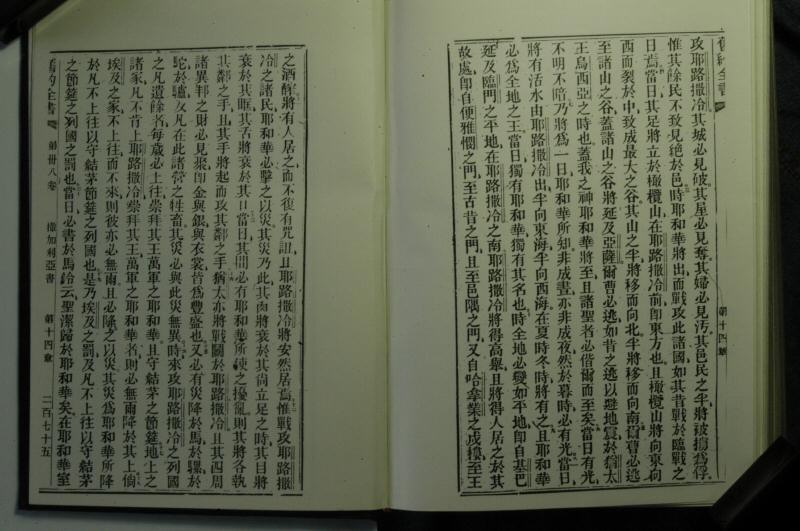 舊約全書 第十四章
攻耶路撒冷其城必見破其屋必見奪其婦必見汚其邑民之半將被擄爲俘
惟其餘民不致見絕於邑時耶和華將出而戰攻此諸國如其昔戰於臨戰之
日焉當日其足將立於橄欖山在耶路撒冷前卽東方也且橄欖山將向東向
西而裂於中致成最大之谷其山之半將移而向北半將移而向南爾曹必逃
至諸山之谷蓋諸山之谷將延及亞薩爾曹必逃如昔之逃以避地震於猶太
王烏西亞之時也蓋我之神耶和華將至且諸聖者必偕爾而至矣當日有光
不明不暗乃將爲一日耶和華所知非成晝亦非成夜然於暮時必有光當日
將有活水由耶路撒冷出半向東海半向西海在夏時冬時將有之且耶和華
必爲全地之王當日獨有耶和華獨有其名也時全地必變如平地卽自基巴
延及臨門之平地在耶路撒冷之南耶路撒冷將得高舉且將得人居之於其
故處卽自便雅憫之門至古昔之門且至邑隅之門又自哈拿業之戍樓至王
之酒醡將有人居之而不復有咒詛且耶路撒冷將安然居焉惟戰攻耶路撒
冷之諸民耶和華必擊之以災其災乃此其肉將衰於其尚立足之時其目將
衰於其眶其舌將衰於其口當日其間必有耶和華所使之擾亂則其將各執
其鄰之手且其手將起而攻其鄰之手猶太亦將戰鬭於耶路撒冷且其四周
諸異邦之財必見聚卽金與銀與衣裳皆爲豐盛也又必有災降於馬於騾於
駝於驢及凡在此諸營之牲畜其災必與此災無異時來攻耶路撒冷之列國
之凡遺餘者每歲必上往崇拜其王萬軍之耶和華且守結茅之節筵地上之
諸家凡不肯上耶路撒冷崇拜其王萬軍之耶和華者則必無雨降於其上倘
埃及之家不上往而不來則彼亦必無雨且必降之以災其災爲耶和華所降
於凡不上往以守結茅節筵之列國也是乃埃及之罰及凡不上往以守結茅
之節筵之列國之罰也當日必書於馬鈴云聖潔歸於耶和華矣在耶和華室
舊約全書 第卅八卷 撒加利亞書 第十四章 二百七十五